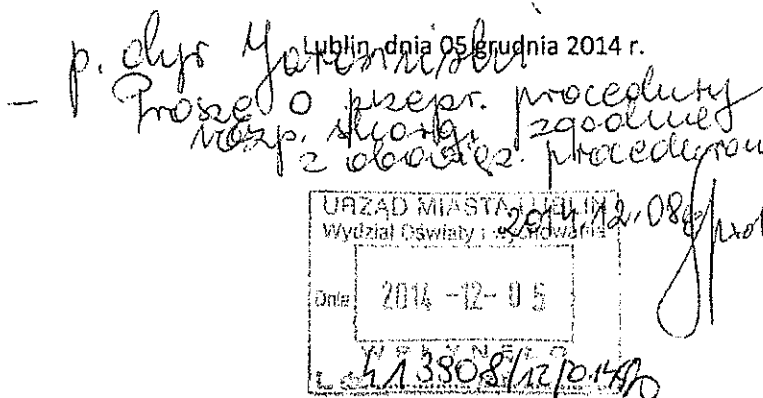 Lublin, dnia 05 grudnia 2014 r.
p. dyr
– Proszę o przepr. procedury
rozp. skargi zgodnie
z obowiąz. procedurami
2014.12.08
URZĄD MIASTA LUBLIN
Wydział Oświaty i Wychowania
Dnia 2014 -12- 05
WPŁYNĘŁO